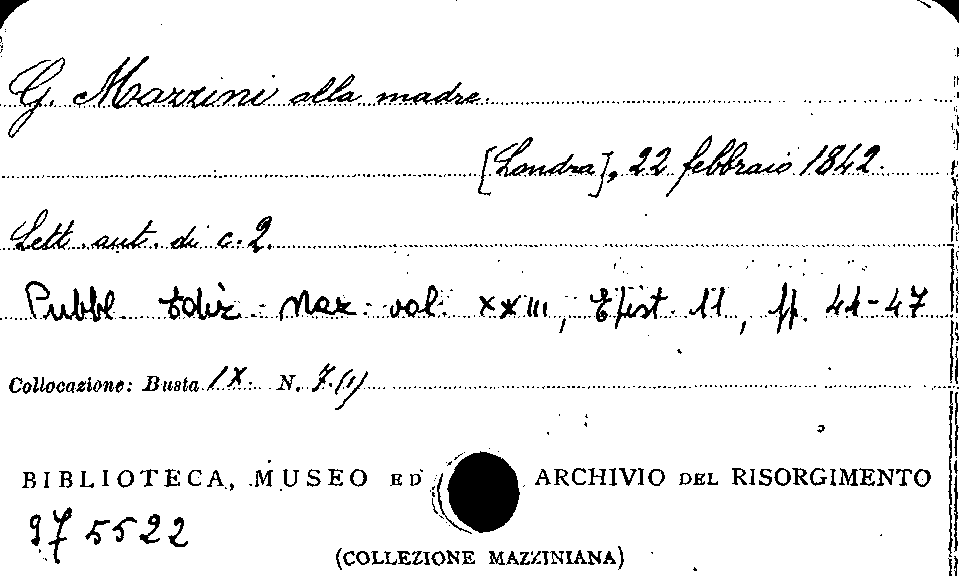 G. Mazzini alla madre.
[Londra], 22 febbraio 1842.
Lett. aut. di c. 2.
Pubbl. Ediz. Naz. vol. XXIII, Epist. 11, pp. 44-47
Collocazione: Busta IX. N. 7.(1)
BIBLIOTECA, MUSEO ED ARCHIVIO DEL RISORGIMENTO
975522
(COLLEZIONE MAZZINIANA)